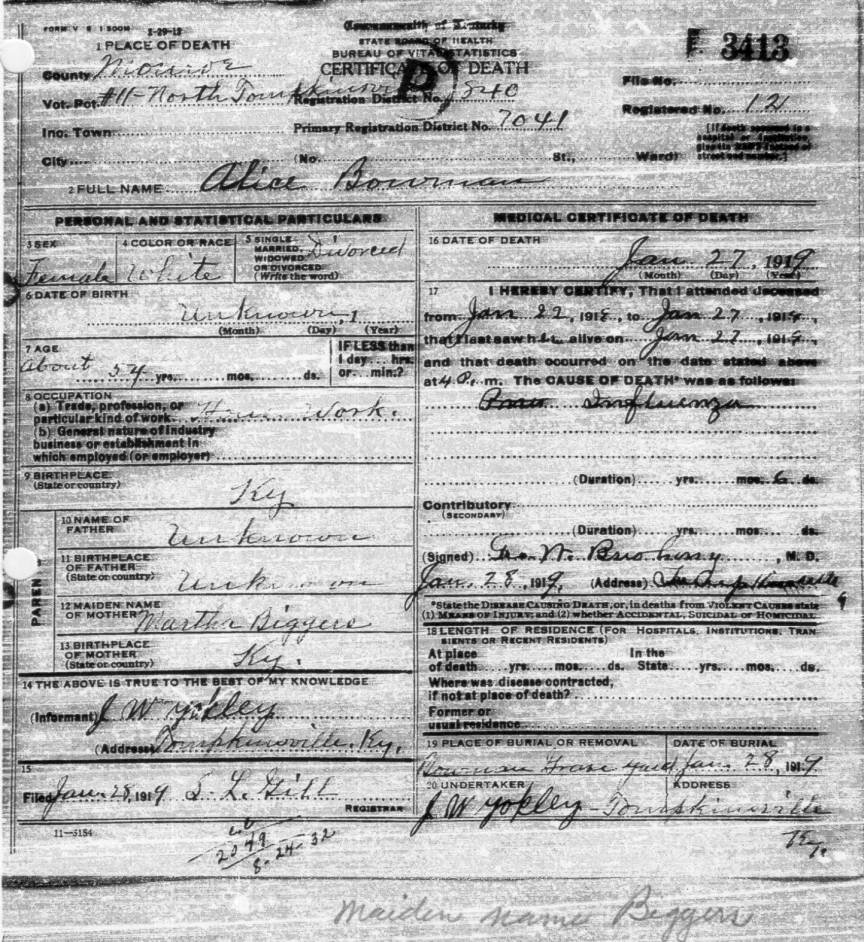 FORM V. S. 1 500M 1-29-12
Commonwealth of Kentucky
STATE BOARD OF HEALTH
BUREAU OF VITAL STATISTICS
CERTIFICATE OF DEATH
F 3413
1 PLACE OF DEATH
County Monroe
Vot. Pct. #11-North Tompkinsville Registration District No. 840
File No.
Registered No. 12
Inc. Town Primary Registration District No. 7041
City (No. St., Ward)
2 FULL NAME Alice Bowman
PERSONAL AND STATISTICAL PARTICULARS
3 SEX Female
4 COLOR OR RACE White
5 SINGLE, MARRIED, WIDOWED OR DIVORCED (Write the word) Divorced
6 DATE OF BIRTH
Unknown, 1
(Month) (Day) (Year)
7 AGE
About 54 yrs. mos. ds.
IF LESS than
1 day hrs.
or min.?
8 OCCUPATION
(a) Trade, profession, or
particular kind of work House Work.
(b) General nature of industry
business or establishment in
which employed (or employer)
9 BIRTHPLACE
(State or country) Ky
PARENTS
10 NAME OF
FATHER Unknown
11 BIRTHPLACE
OF FATHER
(State or country) Unknown
12 MAIDEN NAME
OF MOTHER Martha Biggers
13 BIRTHPLACE
OF MOTHER
(State or country) Ky.
14 THE ABOVE IS TRUE TO THE BEST OF MY KNOWLEDGE
(Informant) J W Yokley
(Address) Tompkinsville, Ky.
15
Filed Jan. 28, 1919 S. L. Gill
REGISTRAR
11—3184
2049
8-24-32
MEDICAL CERTIFICATE OF DEATH
16 DATE OF DEATH
Jan 27, 1919
(Month) (Day) (Year)
17 I HEREBY CERTIFY, That I attended deceased
from Jan 22, 1919, to Jan 27, 1919,
that I last saw her alive on Jan 27, 1919,
and that death occurred on the date stated above
at 4 P. m. The CAUSE OF DEATH* was as follows:
Influenza
(Duration) yrs. mos. 6 ds.
Contributory
(SECONDARY)
(Duration) yrs. mos. ds.
(Signed) Geo. W. , M. D.
Jan. 28, 1919, (Address) Tompkinsville
*State the DISEASE CAUSING DEATH, or, in deaths from VIOLENT CAUSES state
(1) MEANS OF INJURY; and (2) whether ACCIDENTAL, SUICIDAL or HOMICIDAL
18 LENGTH OF RESIDENCE (FOR HOSPITALS, INSTITUTIONS, TRAN
SIENTS OR RECENT RESIDENTS)
At place In the
of death yrs. mos. ds. State yrs. mos. ds.
Where was disease contracted,
if not at place of death?
Former or
usual residence
19 PLACE OF BURIAL OR REMOVAL DATE OF BURIAL
Bowman Grave yard Jan. 28, 1919
20 UNDERTAKER ADDRESS
J W Yokley - Tompkinsville
Ky.
Maiden name Biggers